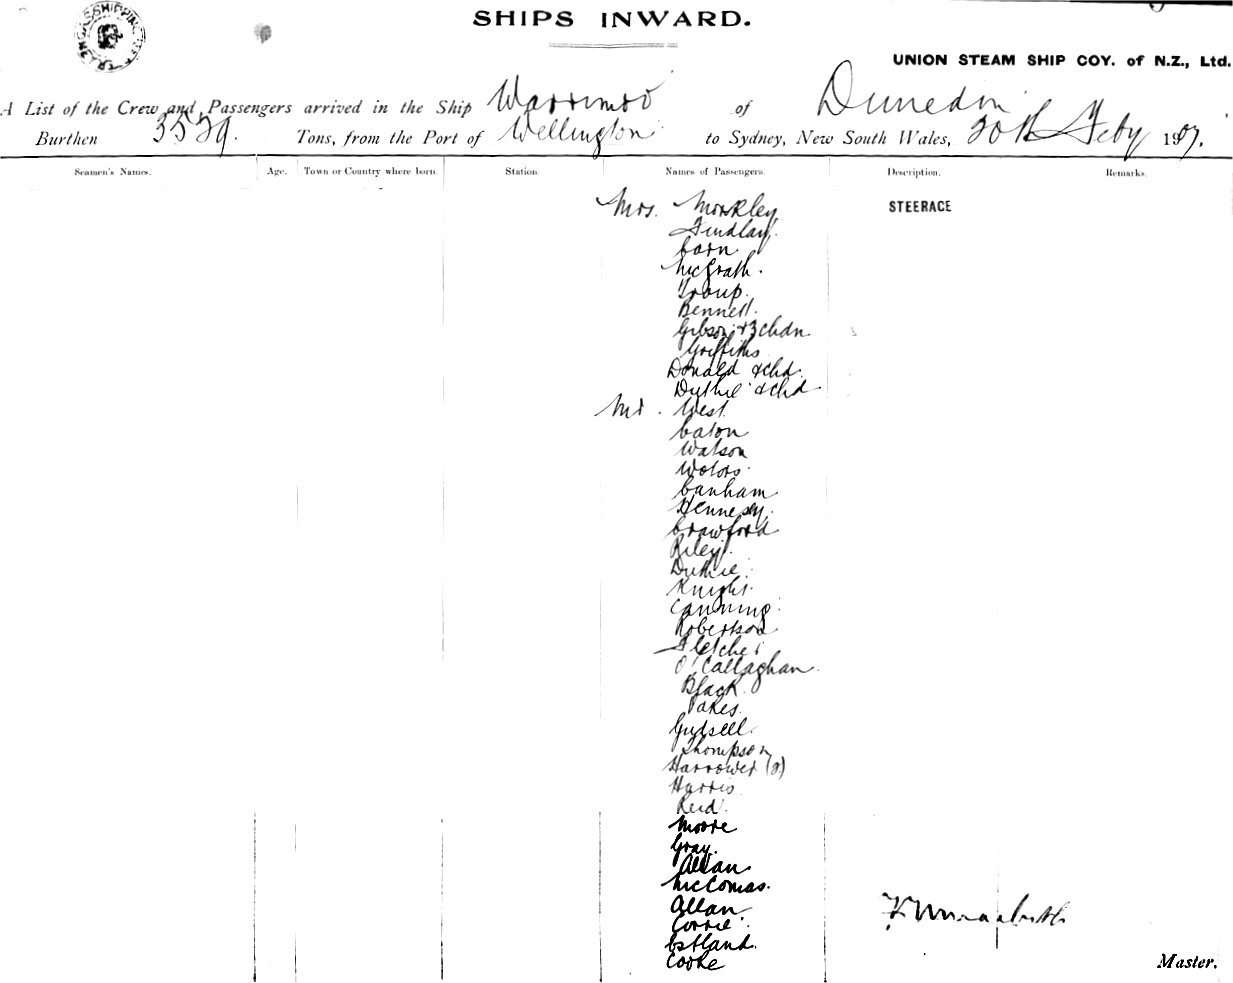 SHIPS INWARD.
UNION STEAM SHIP COY. of N.Z., Ltd.
A List of the Crew and Passengers arrived in the Ship Warrimoo of Dunedin
Burthen 3529. Tons, from the Port of Wellington to Sydney, New South Wales, 20th Feby 1907.
Seamen's Names. Age. Town or Country where born. Station. Names of Passengers. Description. Remarks.
Mrs. Morkley STEERAGE
Findlay
Carn
McGrath.
Troup.
Bennett.
Gibson & 3 chdn
Griffiths
Donald & chd.
Duthie & chd
Mr. West
Caton
Watson
Wotors
Canham
Hennesy.
Crawford
Riley.
Duthie.
Knight.
Canning.
Robertson
Fletcher
O'Callaghan.
Black.
Oakes
Gudsell.
Thompson
Harrower (2)
Harris
Reid.
Moore
Gray.
Allan.
McComas.
Allan
Corrie.
Estland.
Cooke
Master.